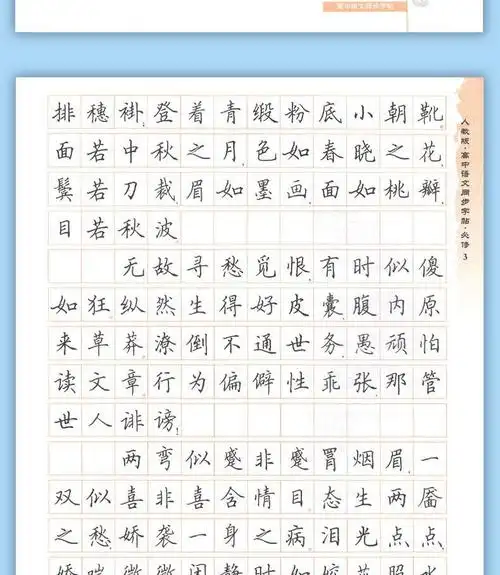 高中语文同步字帖
排穗褂登着青缎粉底小朝靴
面若中秋之月色如春晓之花
鬓若刀裁眉如墨画面如桃瓣
目若秋波
无故寻愁觅恨有时似傻
如狂纵然生得好皮囊腹内原
来草莽潦倒不通世务愚顽怕
读文章行为偏僻性乖张那管
世人诽谤!
两弯似蹙非蹙罥烟眉一
双似喜非喜含情目态生两靥
之愁娇袭一身之病泪光点点
娇喘微微闲静时如姣花照水
人教版·高中语文同步字帖·必修3